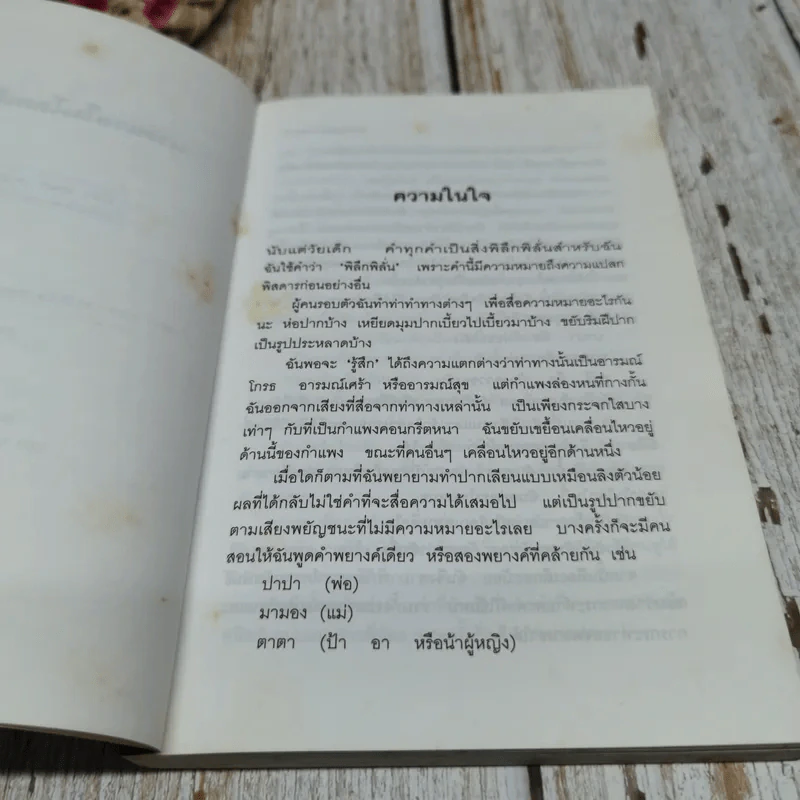 ความในใจ
นับแต่วัยเด็ก คำทุกคำเป็นสิ่งพิลึกพิลั่นสำหรับฉัน
ฉันใช้คำว่า ‘พิลึกพิลั่น’ เพราะคำนี้มีความหมายถึงความแปลก
พิสดารก่อนอย่างอื่น
ผู้คนรอบตัวฉันทำท่าทำทางต่างๆ เพื่อสื่อความหมายอะไรกัน
นะ ห่อปากบ้าง เหยียดมุมปากเบี้ยวไปเบี้ยวมาบ้าง ขยับริมฝีปาก
เป็นรูปประหลาดบ้าง
ฉันพอจะ ‘รู้สึก’ ได้ถึงความแตกต่างว่าท่าทางนั้นเป็นอารมณ์
โกรธ อารมณ์เศร้า หรืออารมณ์สุข แต่กำแพงล่องหนที่กางกั้น
ฉันออกจากเสียงที่สื่อจากท่าทางเหล่านั้น เป็นเพียงกระจกใสบาง
เท่าๆ กับที่เป็นกำแพงคอนกรีตหนา ฉันขยับเขยื้อนเคลื่อนไหวอยู่
ด้านนี้ของกำแพง ขณะที่คนอื่นๆ เคลื่อนไหวอยู่อีกด้านหนึ่ง
เมื่อใดก็ตามที่ฉันพยายามทำปากเลียนแบบเหมือนลิงตัวน้อย
ผลที่ได้กลับไม่ใช่คำที่จะสื่อความได้เสมอไป แต่เป็นรูปปากขยับ
ตามเสียงพยัญชนะที่ไม่มีความหมายอะไรเลย บางครั้งก็จะมีคน
สอนให้ฉันพูดคำพยางค์เดียว หรือสองพยางค์ที่คล้ายกัน เช่น
ปาปา (พ่อ)
มามอง (แม่)
ตาตา (ป้า อา หรือน้าผู้หญิง)